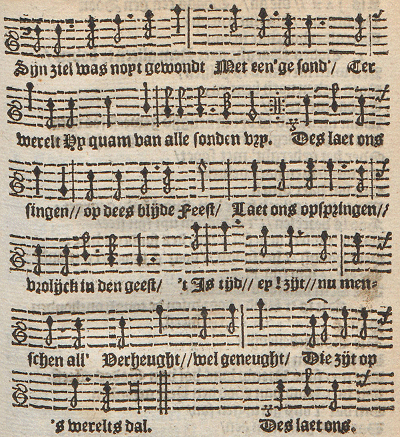 Sijn ziel was noyt gewondt Met een'ge sond'/ Ter
werelt Hy quam van alle sonden vry. Des laet ons
singen// op dees blijde Feest/ Laet ons opspringen//
vrolijck in den geest/ 't Is tijd// ey! zijt//nu men-
schen all' Verheught//wel geneught/ Die zijt op
's werelts dal. Des laet ons.